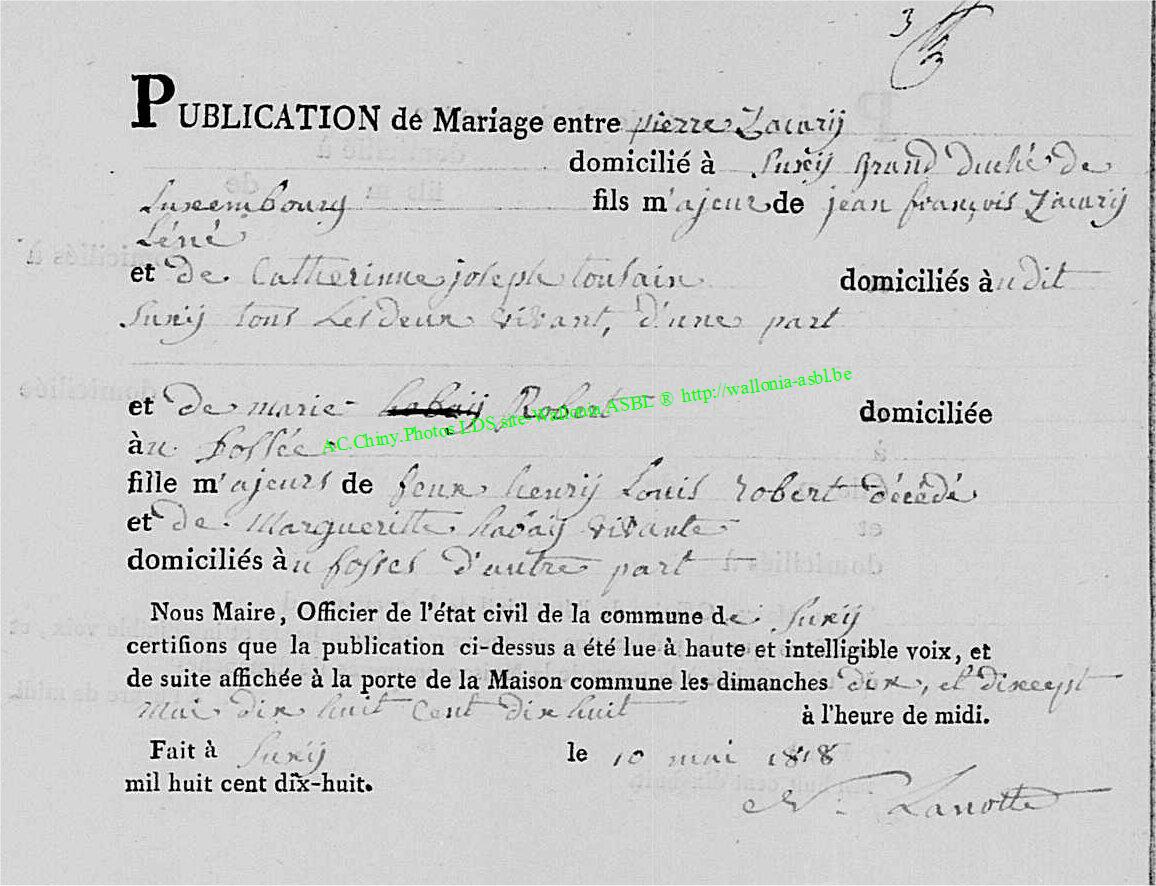 3
PUBLICATION de Mariage entre pierre Zacarij
domicilié à Suxij Grand Duché de
Luxembourg fils m'ajeur de jean françois Zacarij
Léné
et de Catherinne joseph tousain domiciliés àu dit
Suxij tous Les deux vivant, d'une part
et de marie habaij Robert domiciliée
àu fossée
fille m'ajeurs de feux henrij Louis Robert décédé
et de Margueritte habaij vivante
domiciliés àu fosses d'autre part
Nous Maire, Officier de l'état civil de la commune de Suxij
certifions que la publication ci-dessus a été lue à haute et intelligible voix, et
de suite affichée à la porte de la Maison commune les dimanches dix, et dixcept
Mai dix huit Cent dix huit à l'heure de midi.
Fait à Suxij le 10 mai 1818
mil huit cent dix-huit.
N. Lanotte
AC.Chiny.Photos LDS.site Wallonia ASBL ® http://wallonia-asbl.be